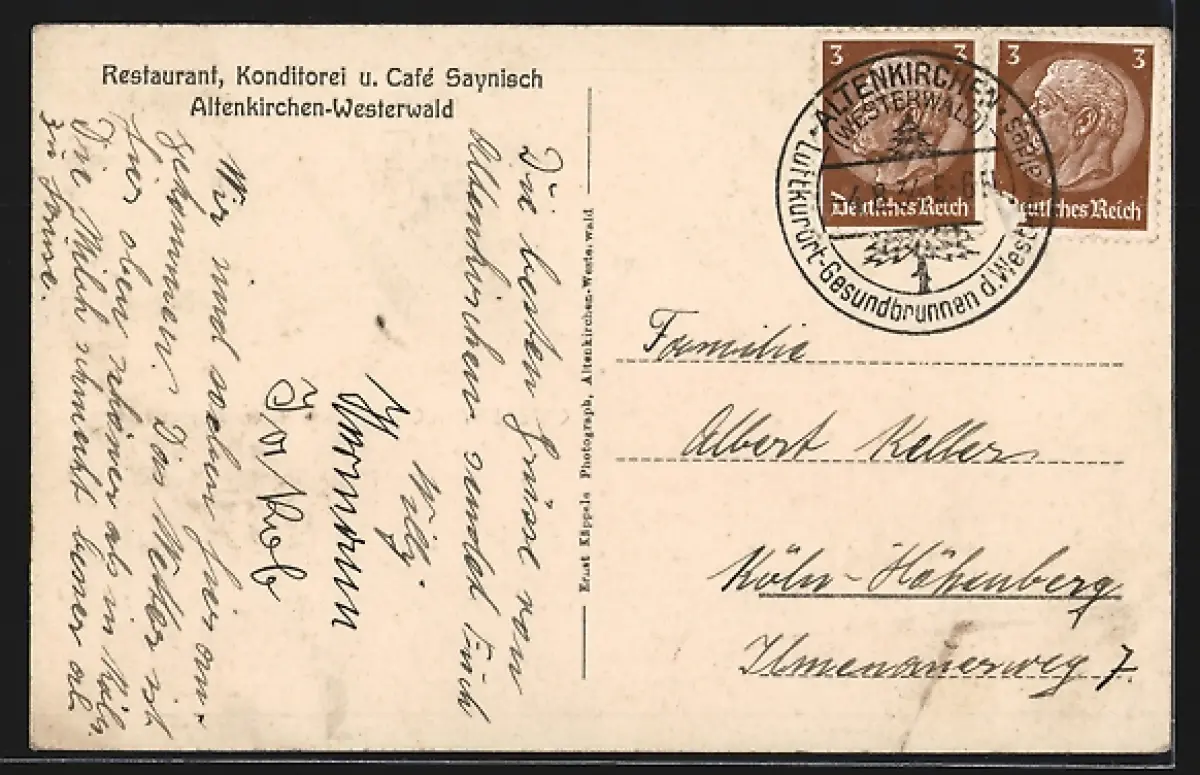 Restaurant, Konditorei u. Café Saynisch
Altenkirchen-Westerwald
Die besten Grüsse von
Altenkirchen sendet Euch
Willy.
Hermann
Wir sind soeben hier an-
gekommen. Das Wetter ist
hier oben schöner als in Köln.
Die Milch schmeckt besser als
zu Hause.
Ernst Käppele Photograph, Altenkirchen-Westerwald
3 3
Deutsches Reich
3 3
Deutsches Reich
ALTENKIRCHEN
(WESTERWALD)
5-6
Luftkurort-Gesundbrunnen d.Westerw
Familie
Albert Keller
Köln-Höhenberg
Ilmenauerweg 7.